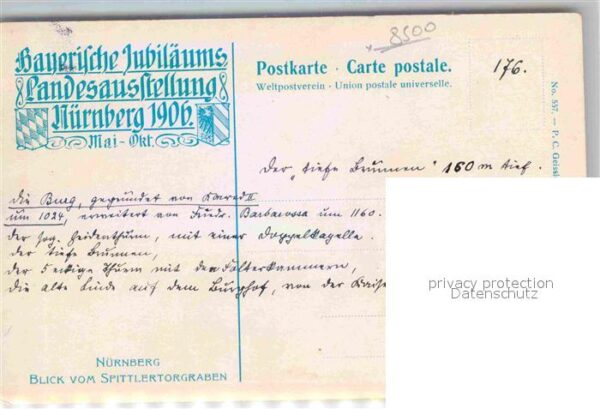 8500
Bayerische Jubiläums
Landesausstellung
Nürnberg 1906.
Mai - Okt.
Postkarte · Carte postale.
Weltpostverein - Union postale universelle.
176.
No. 557. — P. C. Geissl
Der "tiefe Brunnen" 160 m tief.
die Burg, gegründet von Konrad II
um 1024, erweitert von Friedr. Barbarossa um 1160.
der sog. Heidenthurm, mit einer Doppelkapelle.
der tiefe Brunnen,
der 5 eckige Thurm mit den Folterkammern,
die alte Linde auf dem Burghof, von der Kaise
privacy protection
Datenschutz
Nürnberg
Blick vom Spittlertorgraben